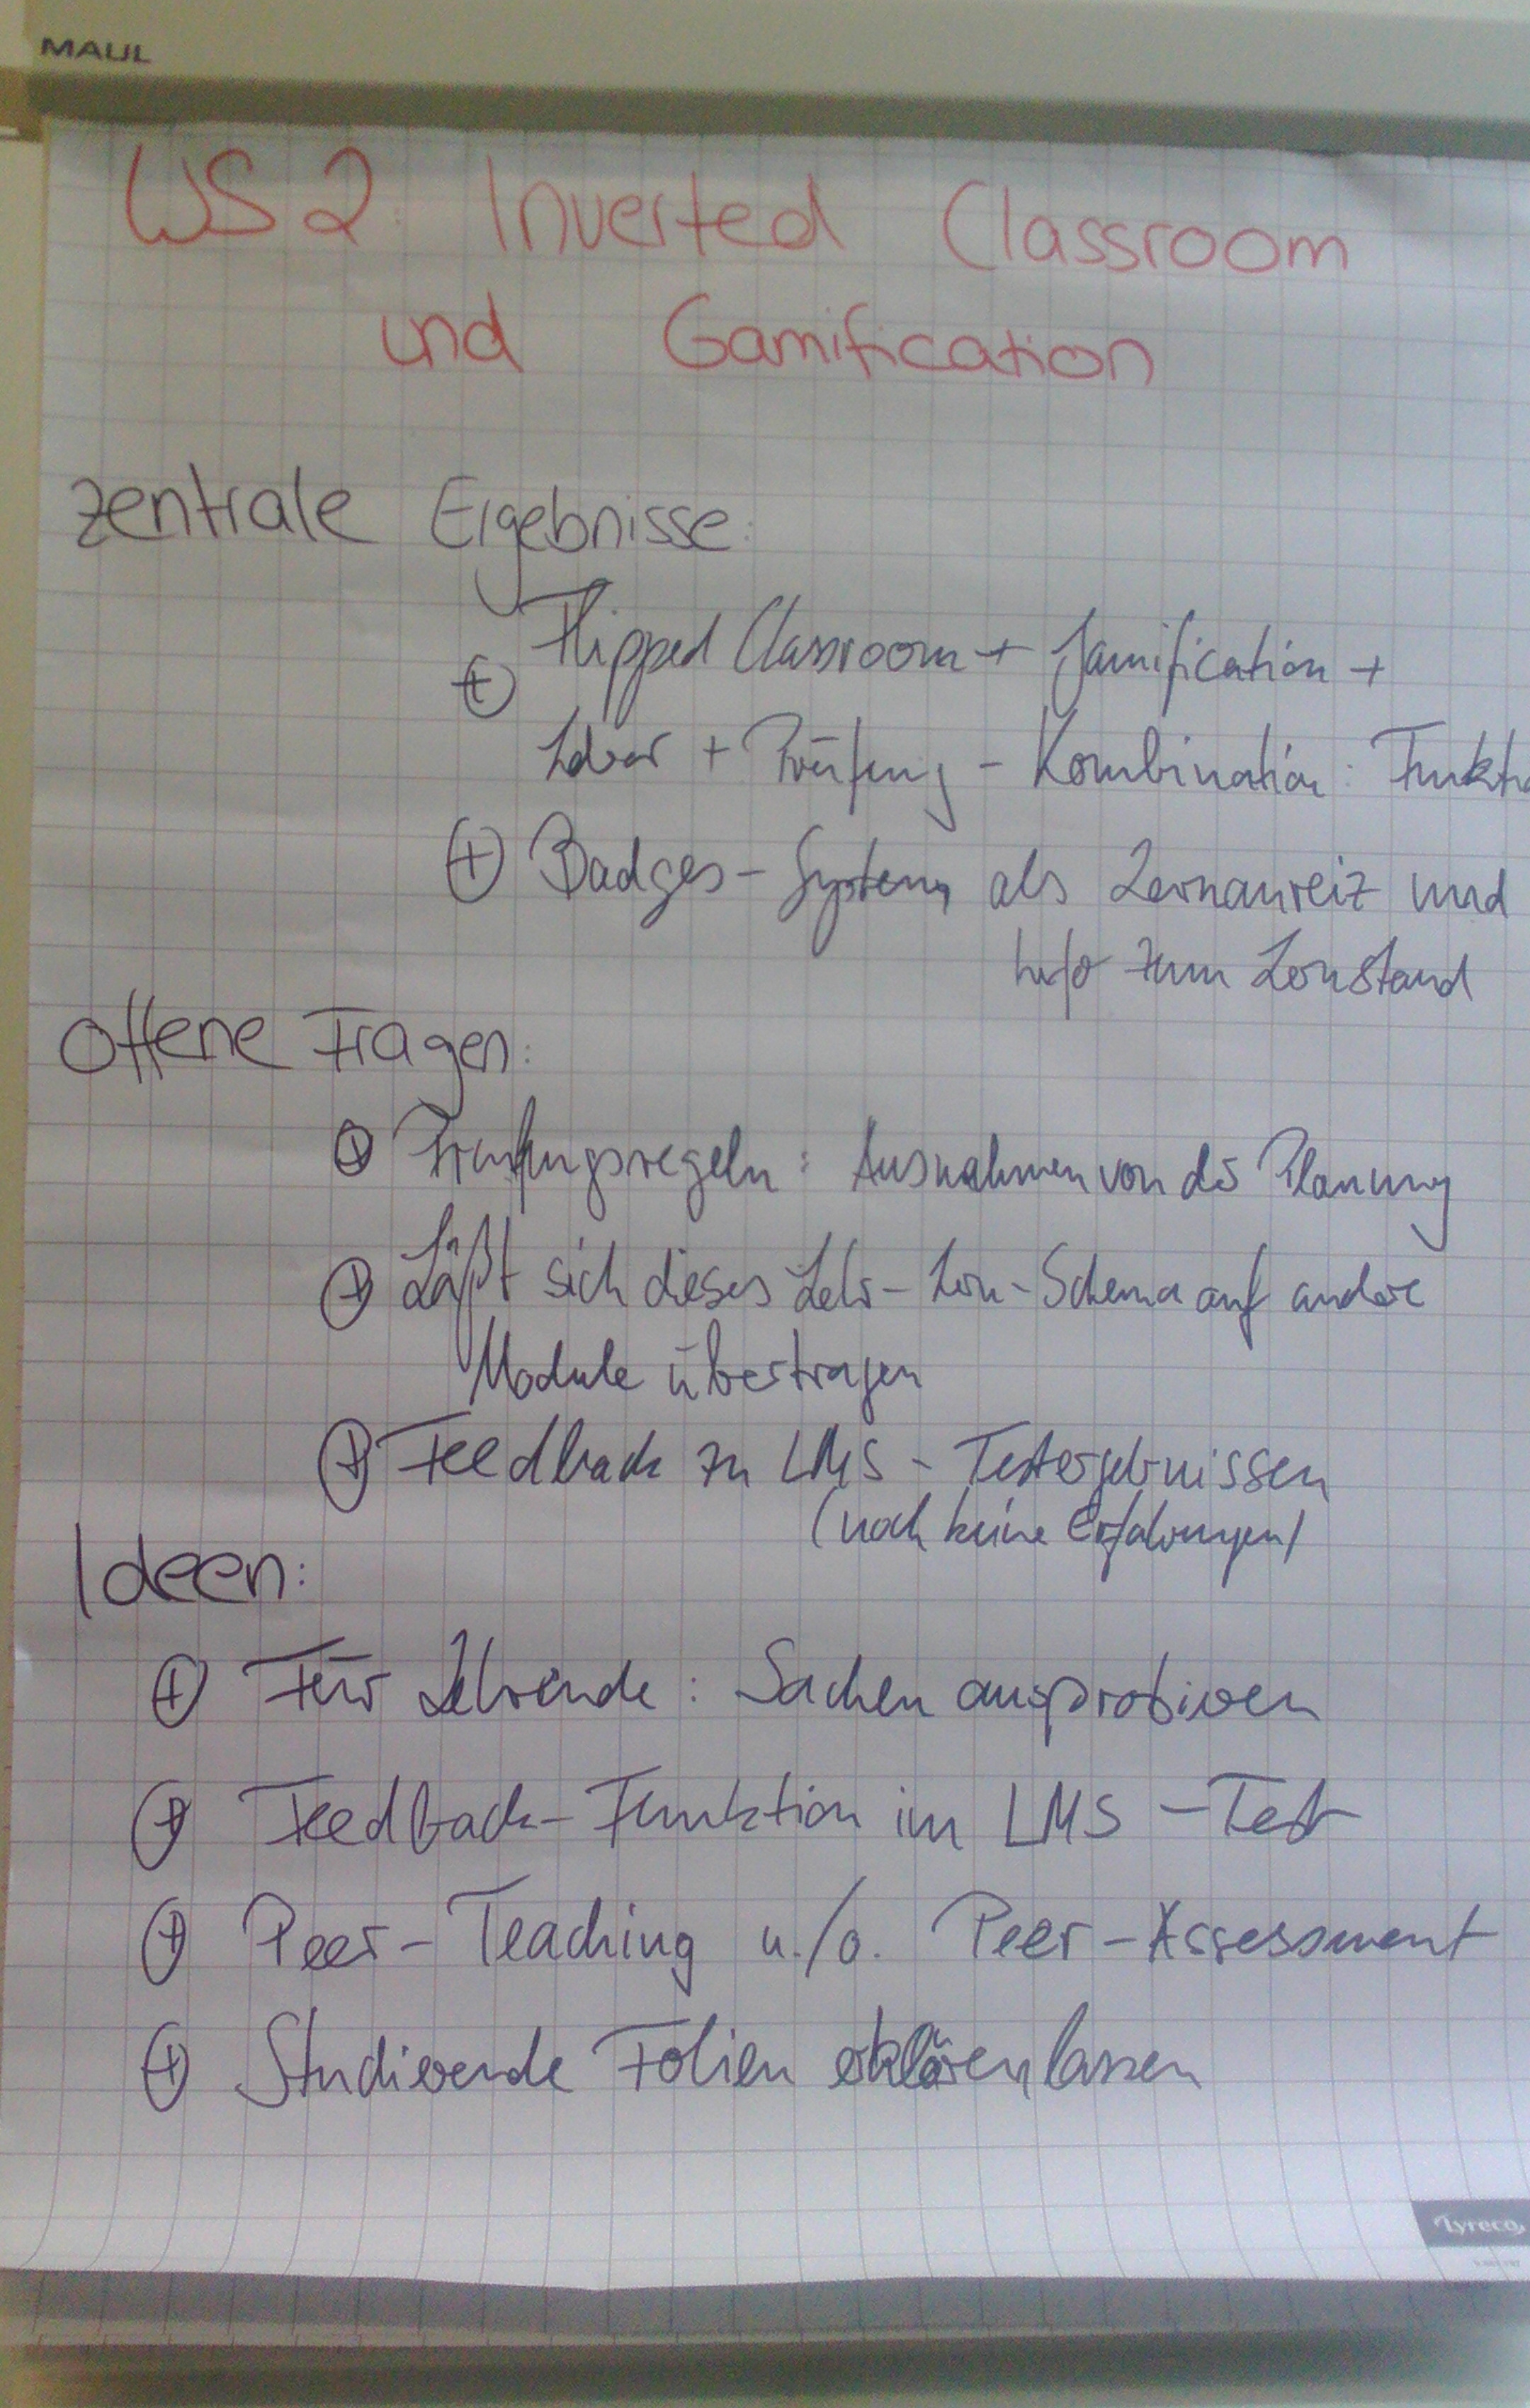 MAUL
WS 2: Inverted Classroom
und Gamification
Zentrale Ergebnisse:
⊕ Flipped Classroom + Gamification +
+ Prüfung - Kombination: Funktio
⊕ Badges - System als Lernanreiz und
Info zum Lernstand
Offene Fragen:
⊕ Prüfungsregeln: Ausnahmen von der Planung
⊕ Läßt sich dieses Lehr-Lern-Schema auf andere
Module übertragen
⊕ Feedback zu LMS - Testergebnissen
(noch keine Erfahrungen)
Ideen:
⊕ Für Lehrende: Sachen ausprobieren
⊕ Feedback-Funktion im LMS - Test
⊕ Peer-Teaching u./o. Peer-Assessment
⊕ Studierende Folien erklären lassen
Lyreco